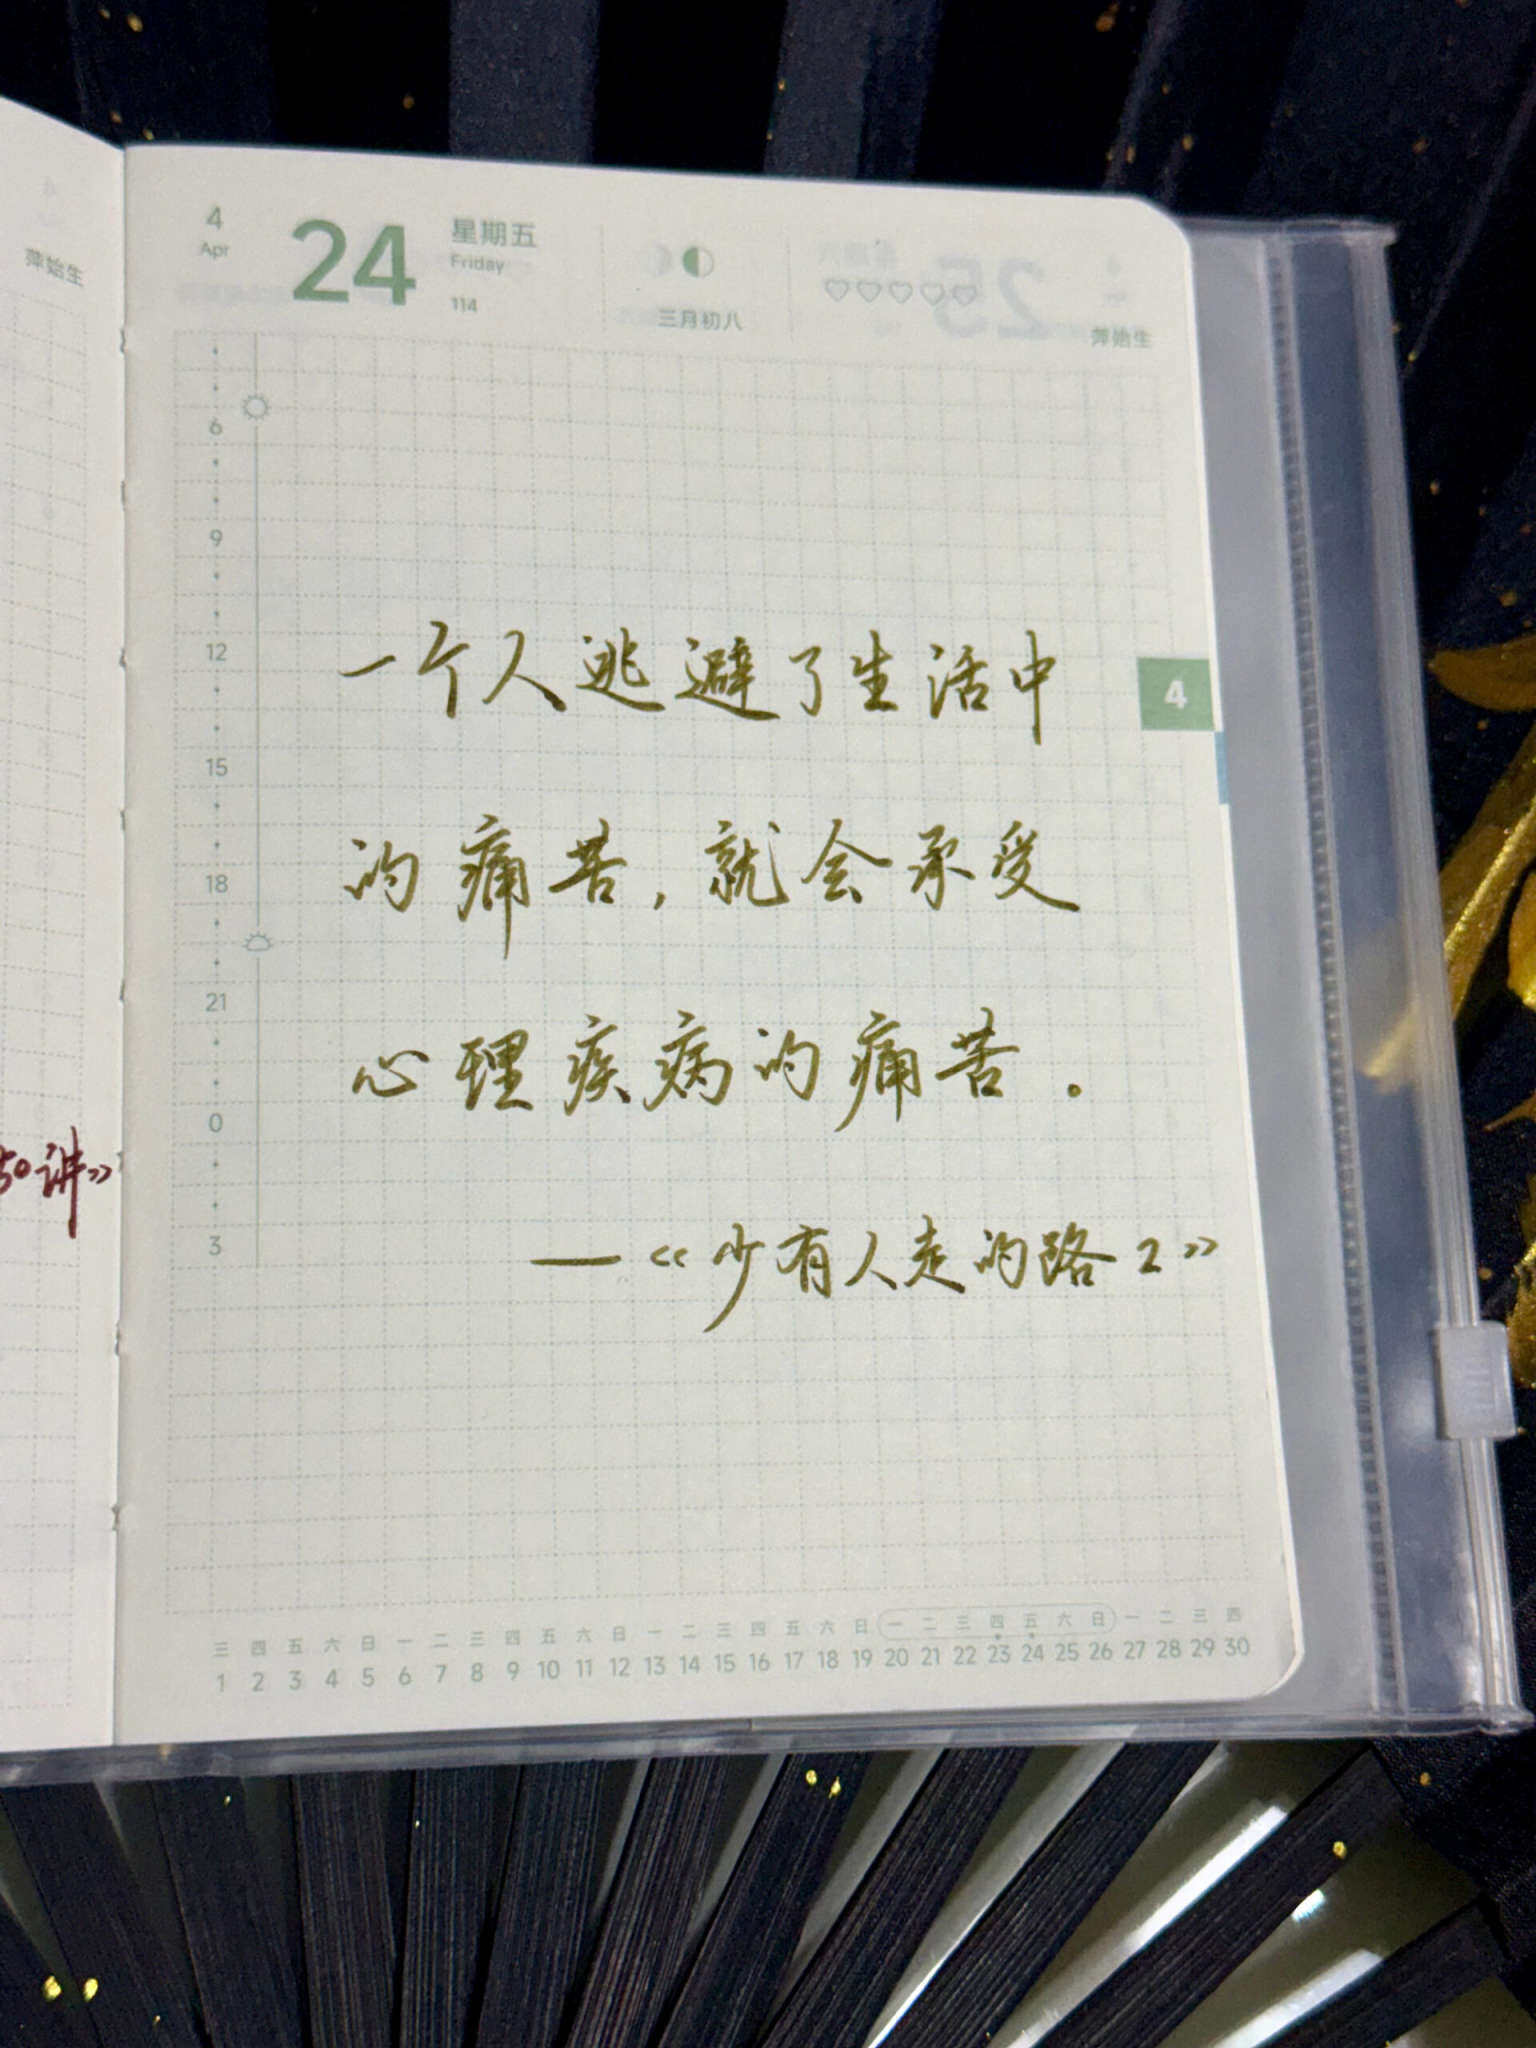 萍始生
4
Apr
24
星期五
Friday
114
三月初八
萍始生
6
9
12
一个人逃避了生活中
4
15
的痛苦,就会承受
18
21
心理疾病的痛苦。
0
50讲》
—《少有人走的路2》
3
三 四 五 六 日 一 二 三 四 五 六 日 一 二 三 四 五 六 日 一 二 三 四 五 六 日 一 二 三 四
1 2 3 4 5 6 7 8 9 10 11 12 13 14 15 16 17 18 19 20 21 22 23 24 25 26 27 28 29 30